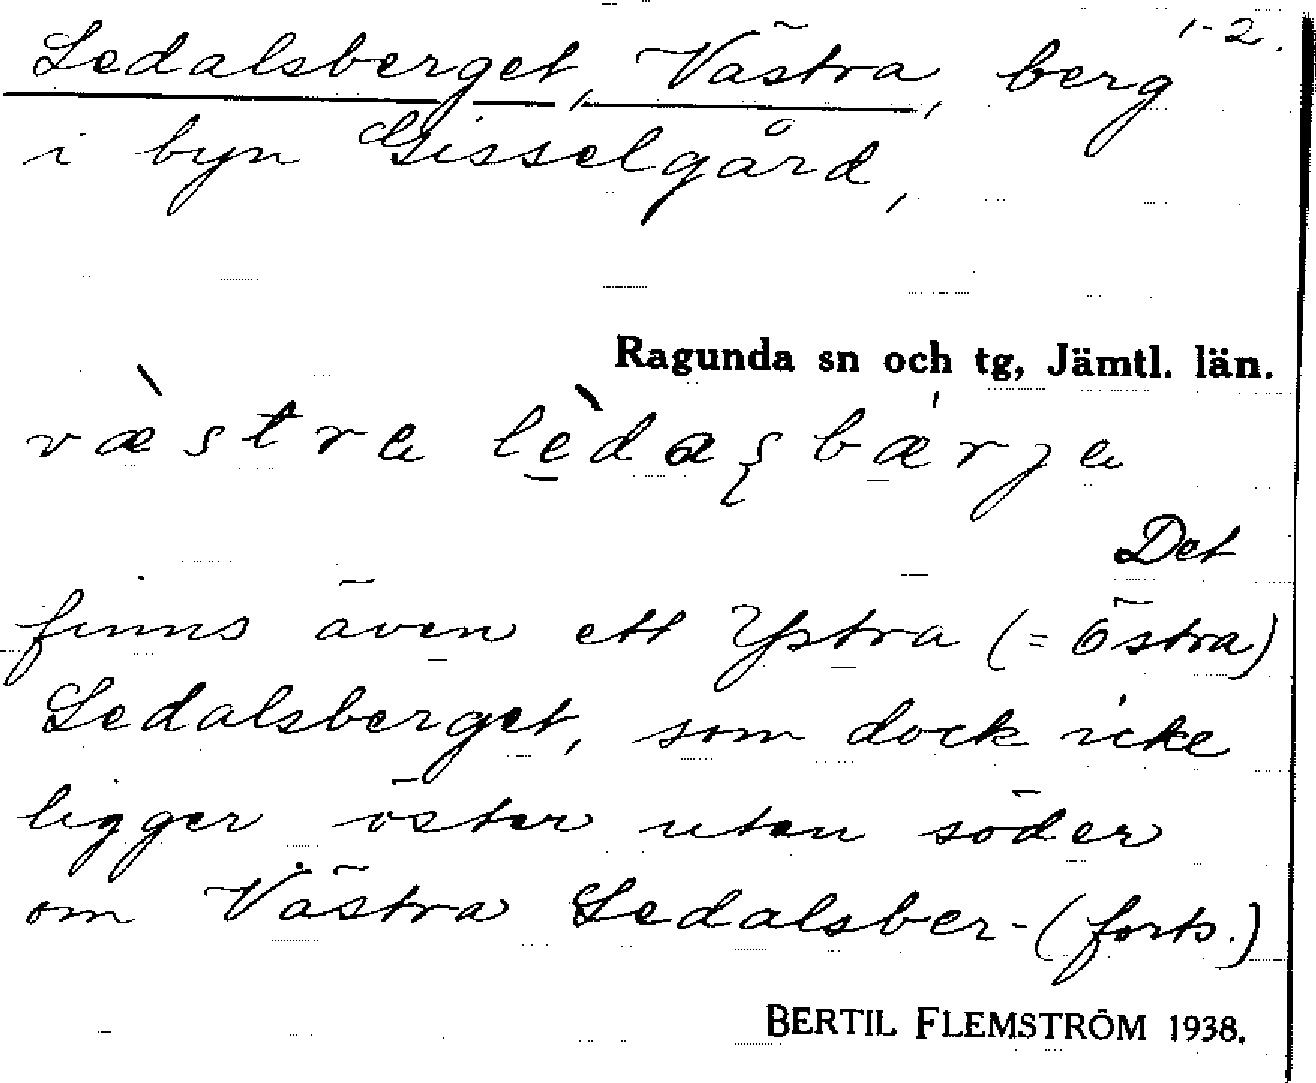 1-2.
Ledalsberget, Västra, berg
i byn Gisselgård,
Ragunda sn och tg, Jämtl. län.
væ̀stra lèdaʂbærja
Det
finns även ett Ystra (= Östra)
Ledalsberget, som dock icke
ligger öster utan söder
om Västra Ledalsber- (forts.)
BERTIL FLEMSTRÖM 1938.